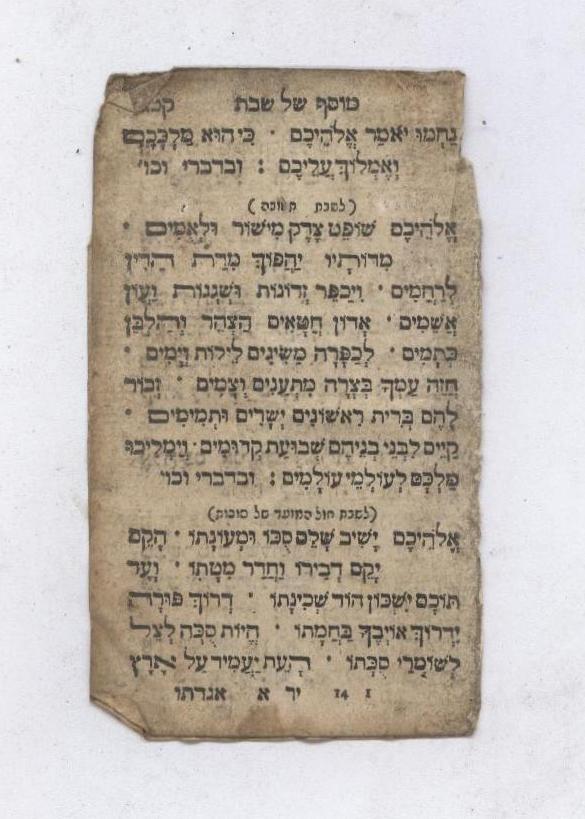 מוסף של שבת
נַחֲמוּ יֹאמַר אֱלֹהֵיכֶם · כִּי הוּא מַלְכְּכֶם
וְאֶמְלוֹךְ עֲלֵיכֶם : ובדברי וכו׳
(לשבת תשובה)
אֱלֹהֵיכֶם שׁוֹפֵט צֶדֶק מִישׁוֹר וּלְאֻמִּים ·
מִדּוֹתָיו יַהֲפוֹךְ מִדַּת הַדִּין
לְרַחֲמִים · וִיכַפֵּר זְדוֹנוֹת וּשְׁגָגוֹת וַעֲוֹן
אֲשֵׁמִים · אָדוֹן חֲטָאִים הַצְהַר וְהַלְבֵּן
כְּתָמִים · לְכַפָּרָה מַשִּׂיגִים לֵילוֹת וְיָמִים ·
חֲזֵה עַמְּךָ בְּצָרָה מִתְעַנִּים וְצָמִים · זְכוֹר
לָהֶם בְּרִית רִאשׁוֹנִים יְשָׁרִים וּתְמִימִים ·
קַיֵּים לִבְנֵי בְנֵיהֶם שְׁבוּעַת קְדוּמִים · וְיַמְלִיכוּ
מַלְכָּם לְעוֹלְמֵי עוֹלָמִים : ובדברי וכו׳
(לשבת חול המועד של סוכות)
אֱלֹהֵיכֶם יָשִׁיב שָׁלֵם סֻכּוֹ וּמְעוֹנָתוֹ · הָקֵם
יָקֵם דְּבִירוֹ וַחֲדַר מִטָּתוֹ · וָעֵד
תּוֹכָם יִשְׁכּוֹן הוֹד שְׁכִינָתוֹ · דְּרוֹךְ פּוּרָה
יִדְרוֹךְ אוֹיְבֶךָ בַּחֲמָתוֹ · הֱיוֹת סֻכָּה לְצֵל
לְשׁוֹמְרֵי סֻכָּתוֹ · הָעֵת יַעֲמִיד עַל אֶרֶץ
1 14 יד א אגדתו